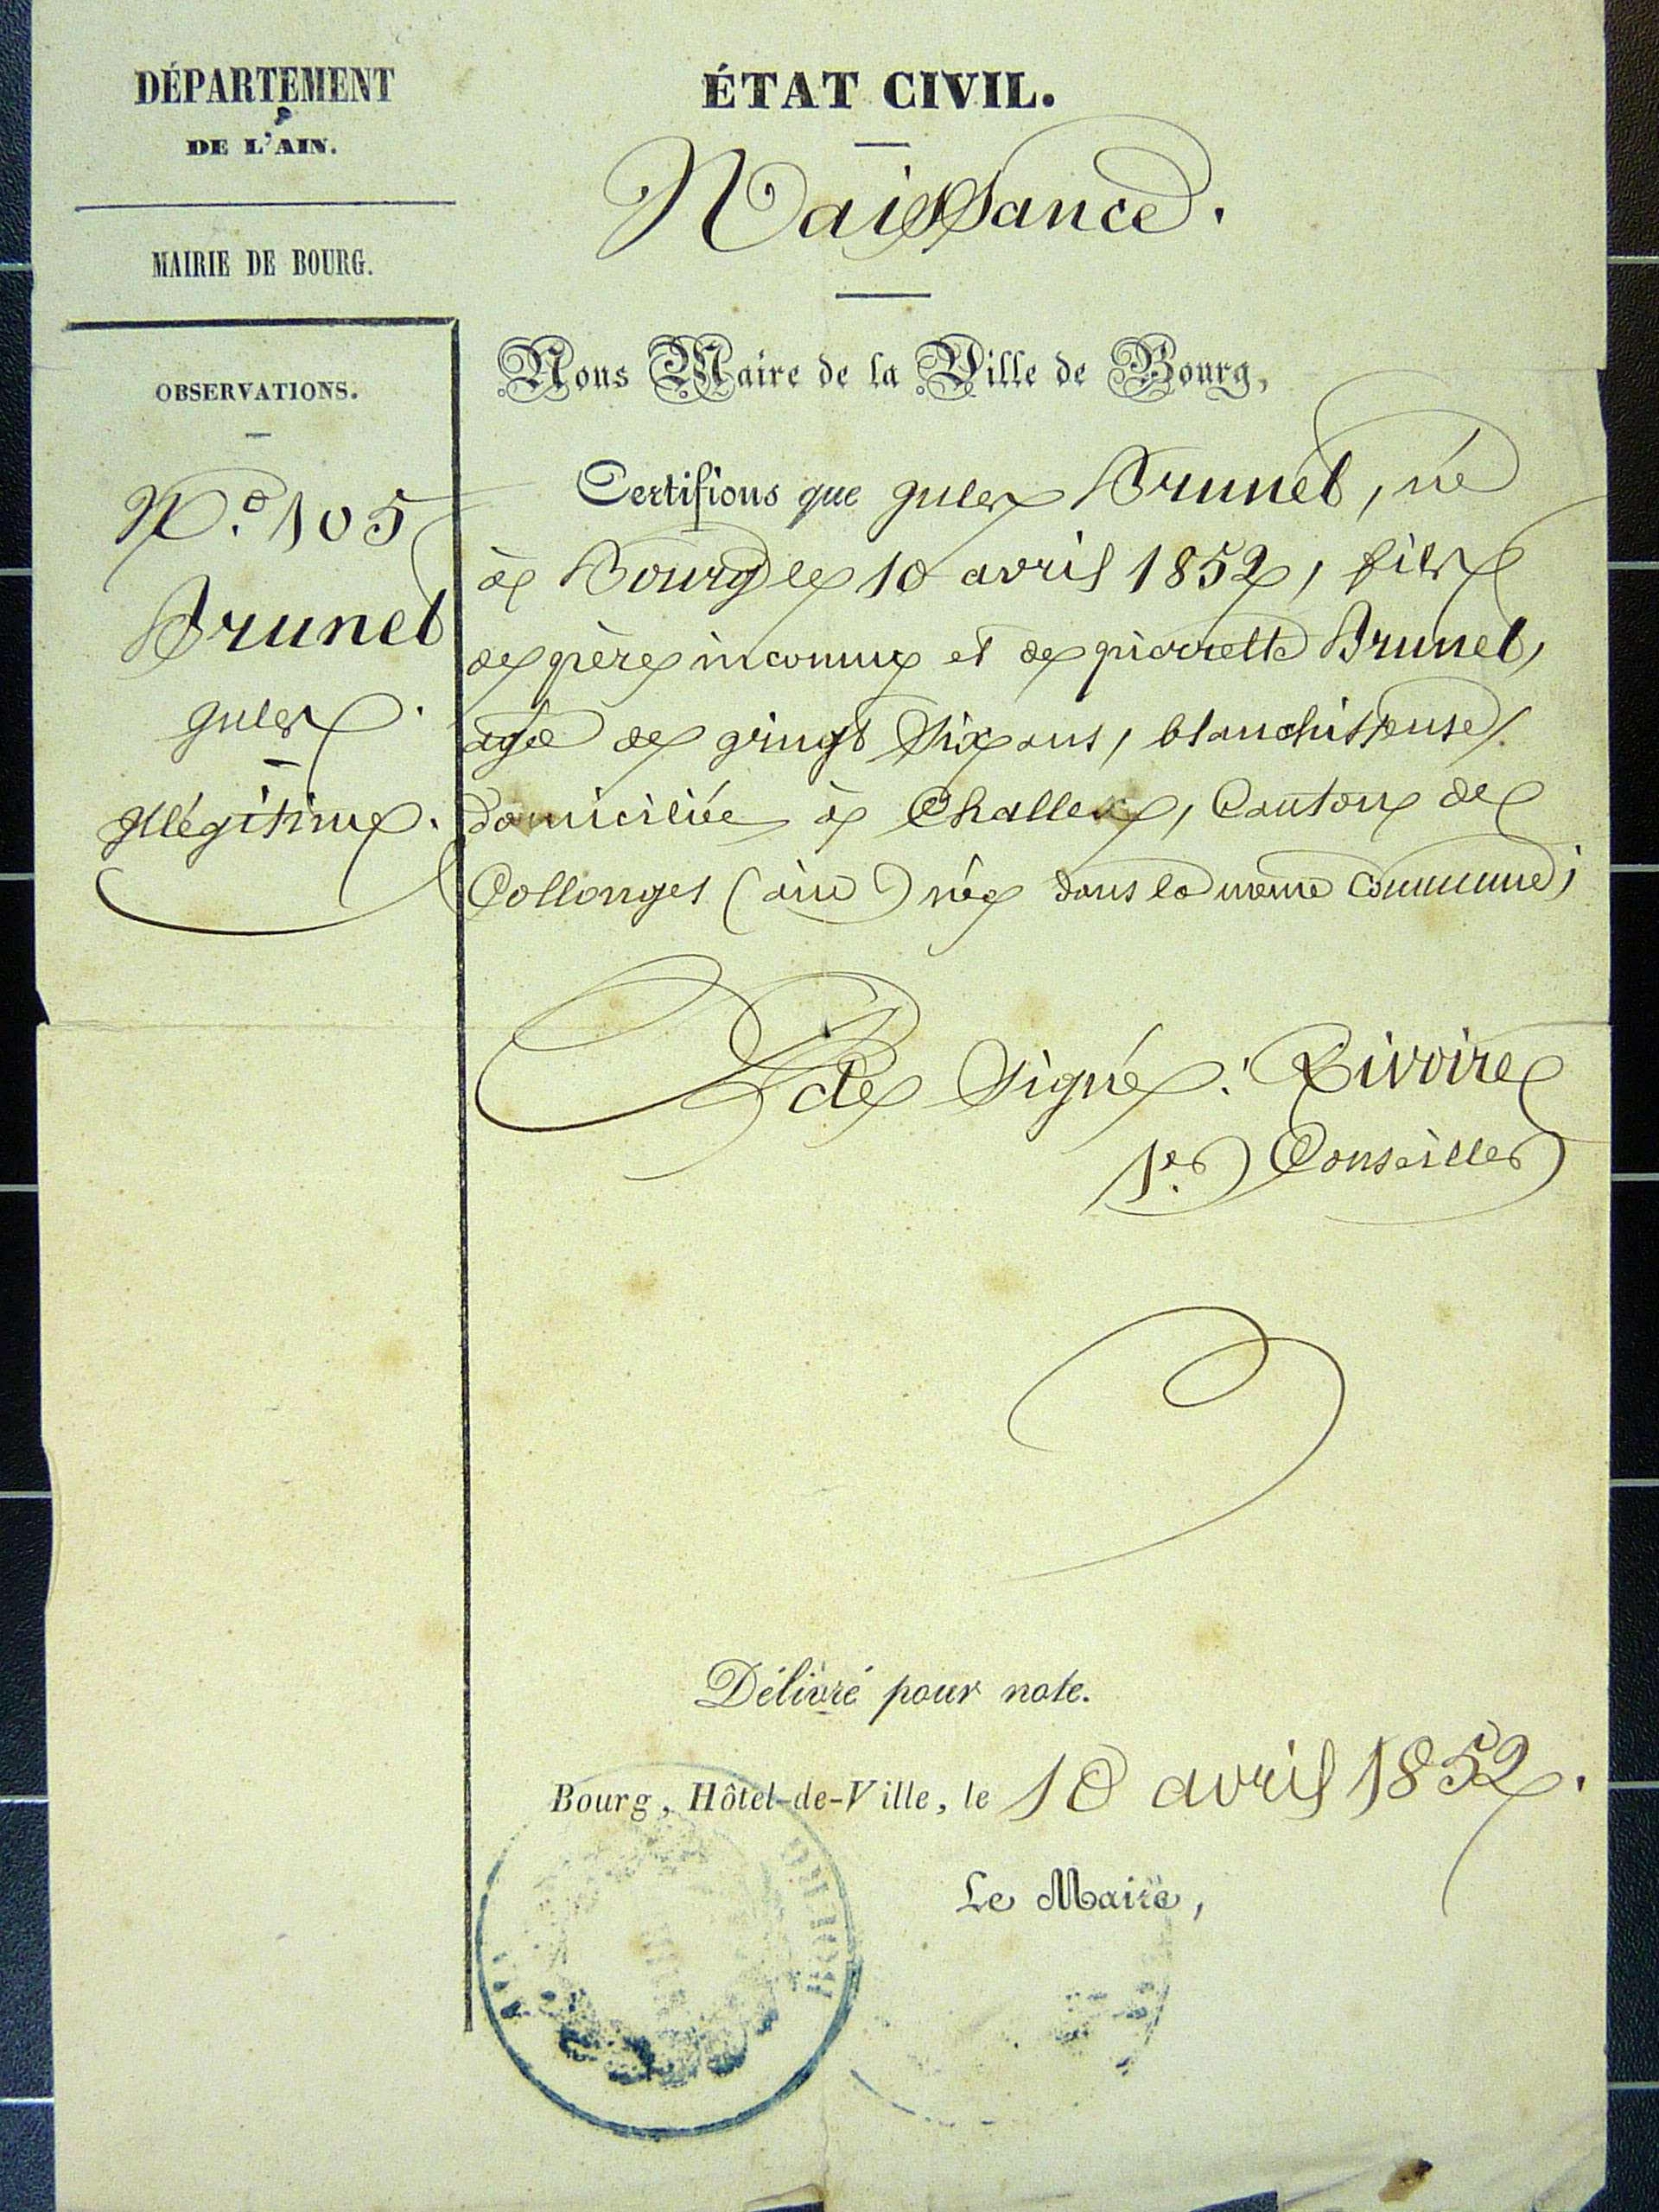 DÉPARTEMENT
DE L'AIN.
MAIRIE DE BOURG.
OBSERVATIONS.
N.º 105
Brunet
jules
illégitime.
ÉTAT CIVIL.
Naissance.
Nous Maire de la Ville de Bourg,
Certifions que jules Brunet, né
à Bourg le 10 avril 1852, fils
de père inconnu et de pierrette Brunet,
agée de vingt six ans, blanchisseuse,
domiciliée à Challex, Canton de
Collonges (ain) née dans la même commune;
de Signé: Rivoire
1.er Conseiller
Délivré pour note.
Bourg, Hôtel-de-Ville, le 10 avril 1852.
Le Maire,